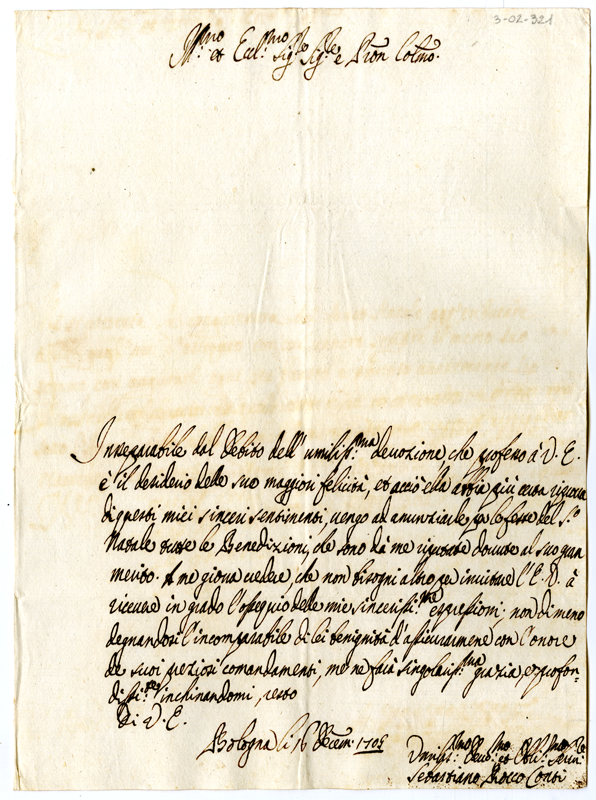 3-02-321
Ill.mo et Ecc.mo Sig.re Sig.re e Pron Colmo.
Inseparabile dal debito dell'umiliss.ma devozione, che professo à V. E.
è il desiderio delle sue maggiori felicità, et acciò ella abbia più certa riprova
di questi miei sinceri sentimenti vengo ad annunziarle p le feste del S.o
Natale tutte le Benedizioni, che sono dà me riputate dovute al suo gran
merito. A me giova credere, che non bisogni altro per invitare l'E. V. à
ricevere in grado l'ossequio delle mie sinceriss.me espressioni; non di meno
degnandosi l'incomparabile di lei benignità d'assicurarmene con l'onore
de suoi preziosi comandamenti, me ne farà singolariss.ma grazia, e profon-
diss.te inchinandomi, resto
Di V. E.
Bologna li 16 Decem. 1705
Umiliss.mo Devo.mo et Obl.mo Ser.re
Sebastiano Rocco Conti